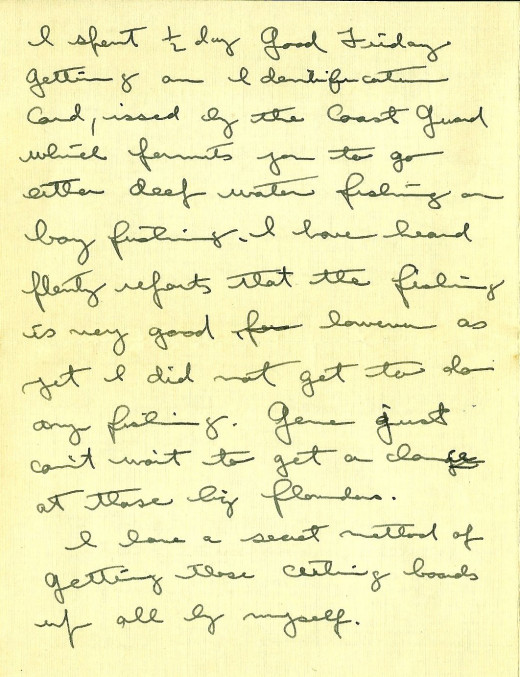 I spent ½ day Good Friday
getting an Identification
Card, issed by the Coast Guard
which permits you to go
either deep water fishing or
bay fishing. I have heard
plenty reports that the fishing
is very good, for however as
yet I did not get to do
any fishing. Gene just
can't wait to get a chance
at those big flounders.
I have a secret method of
getting those ceiling boards
up all by myself.